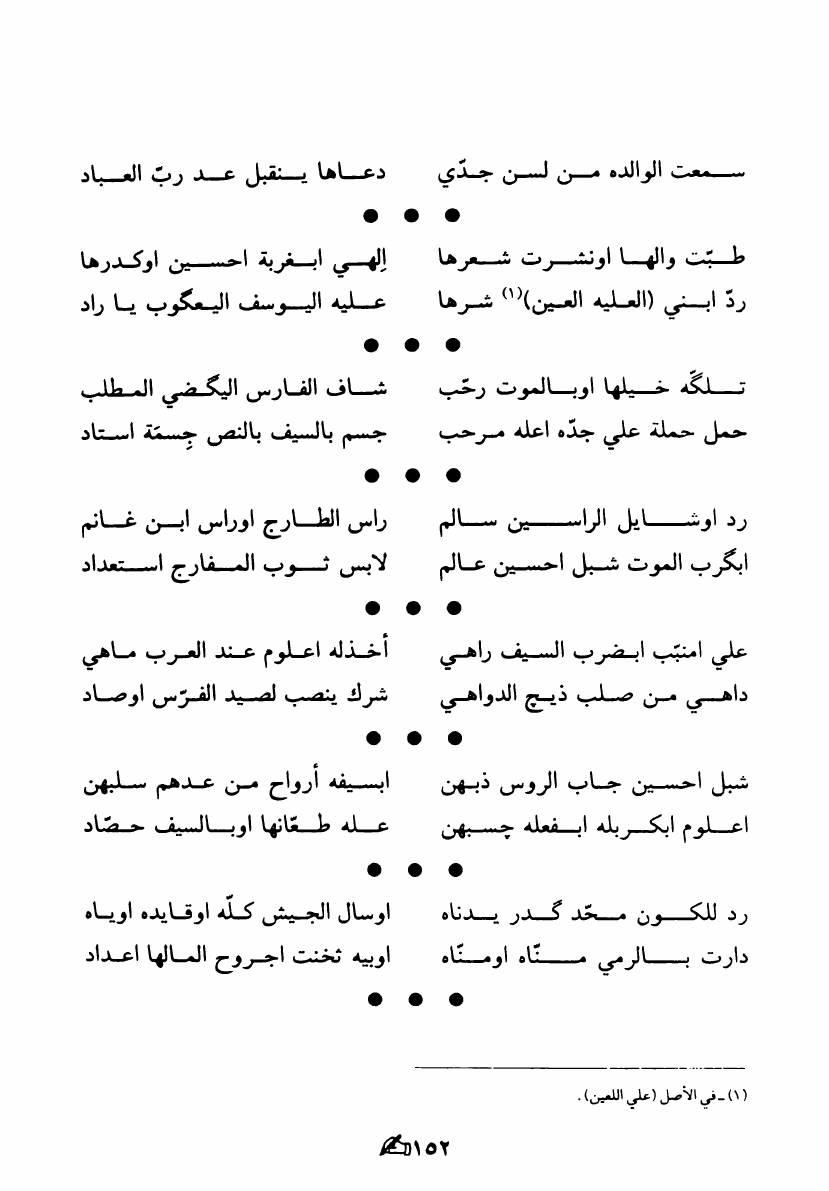 سمعت الوالده من لسن جدّي    دعاها ينقبل عد ربّ العباد
● ● ●
طبّت والها اونشرت شعرها    إلهي ابغربة احسين اوكدرها
ردّ ابني (العليه العين)(١) شرها    عليه اليوسف اليعگوب يا راد
● ● ●
تلگّه خيلها اوبالموت رحّب    شاف الفارس اليگضي المطلب
حمل حملة علي جدّه اعله مرحب    جسم بالسيف بالنص جِسمَة استاد
● ● ●
رد اوشايل الراسين سالم    راس الطارج اوراس ابن غانم
ابگرب الموت شبل احسين عالم    لابس ثوب المفارج استعداد
● ● ●
علي امنبّب ابضرب السيف راهي    أخذله اعلوم عند العرب ماهي
داهي من صلب ذيچ الدواهي    شرك ينصب لصيد الفرّس اوصاد
● ● ●
شبل احسين جاب الروس ذبهن    ابسيفه أرواح من عدهم سلبهن
اعلوم ابكربله ابفعله چسبهن    عله طعّانها اوبالسيف حصّاد
● ● ●
رد للكون محّد گدر يدناه    اوسال الجيش كلّه اوقايده اوياه
دارت بالرمي منّاه اومنّاه    اوبيه ثخنت اجروح المالها اعداد
● ● ●
(١) ـ في الأصل (علي اللعين) .
١٥٢